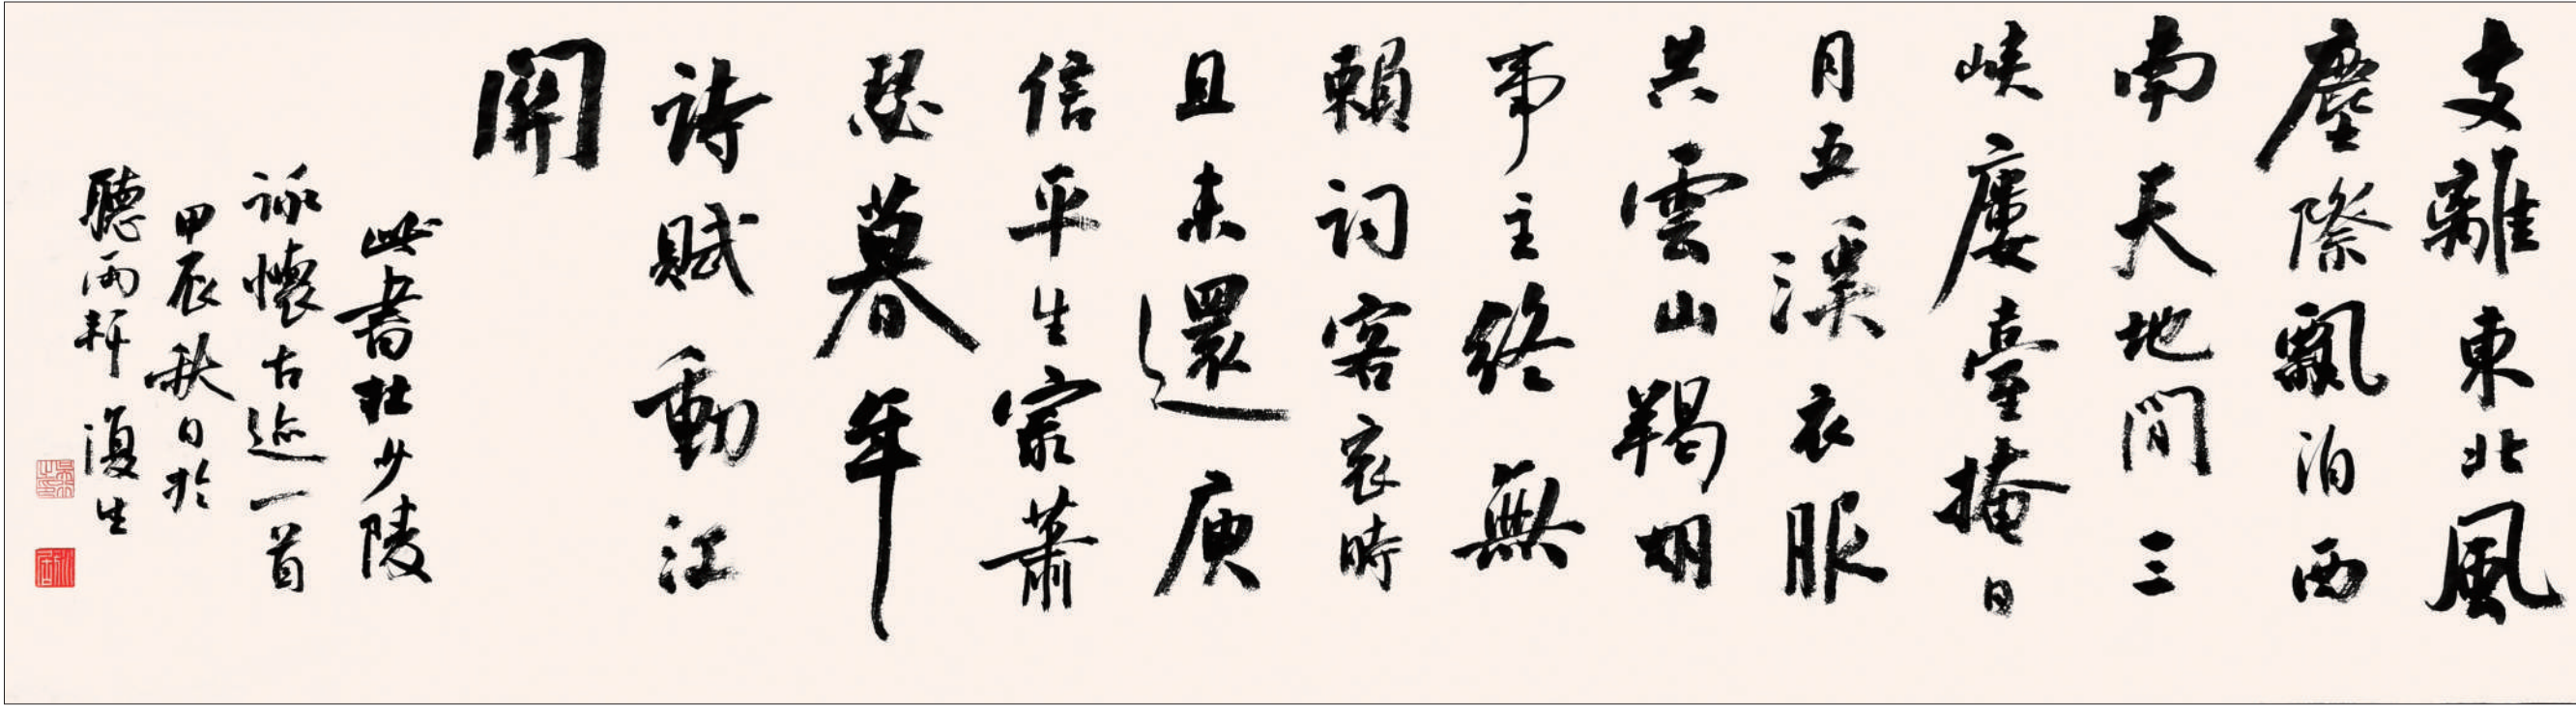 支離東北風
塵際飄泊西
南天地間三
峽廔臺掩日
月五溪衣服
共雲山羯胡
事主終無
賴詞客哀時
且未還庾
信平生寂蕭
瑟暮年
詩賦動江
關
此書杜少陵
詠懷古迹一首
甲辰秋日於
聽雨軒復生